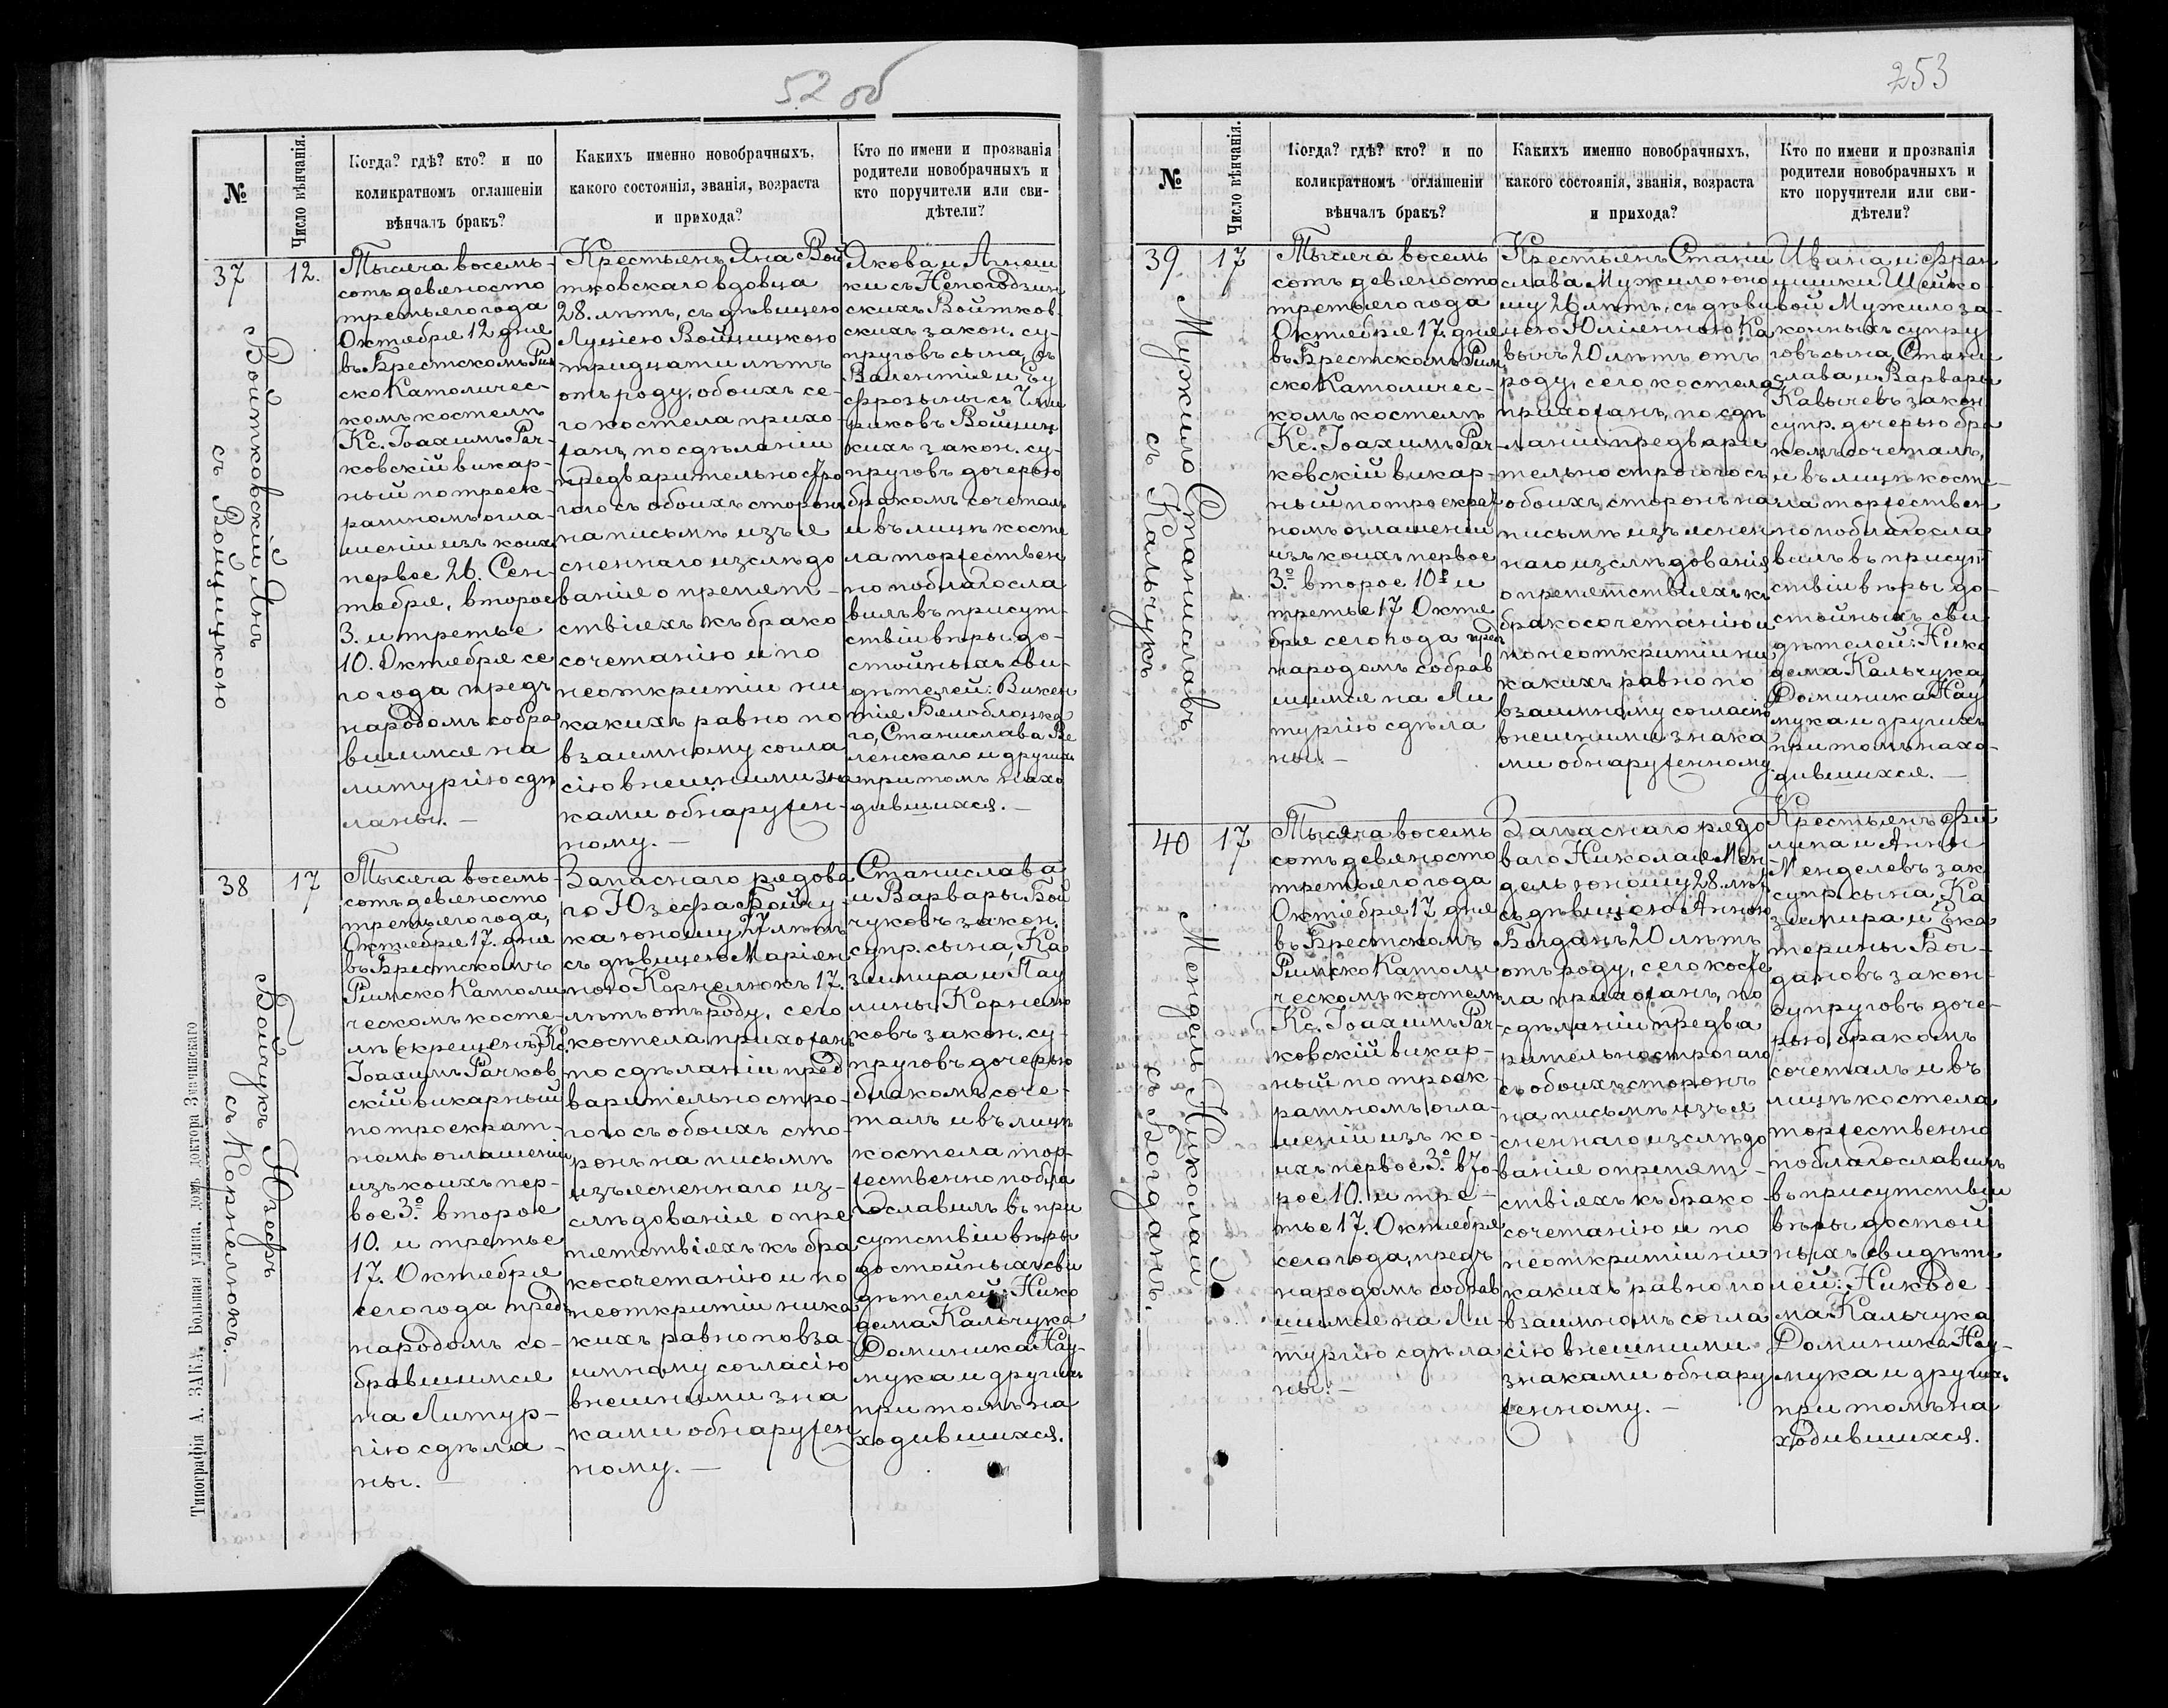 52 об
№
Число вѣнчанія.
Когда? гдѣ? кто? и по
коликратномъ оглашеніи
вѣнчалъ бракъ?
Какихъ именно новобрачныхъ,
какого состоянія, званія, возраста
и прихода?
Кто по имени и прозванія
родители новобрачныхъ и
кто поручители или сви-
дѣтели?
37
12.
Войтковскій Янъ
съ Войцицкою
Тысяча восемь-
сотъ девяносто
третьяго года
Октября 12 дня
въ Брестскомъ Рим
ско Католичес-
комъ костелѣ
Кс. Іоахимъ Рач-
ковскій викар-
ный по троек-
ратномъ огла-
шеніи изъ коихъ
первое 26. Сен-
тября, второе
3. и третье
10. Октября се
го года предъ
народомъ собра
вшимся на
литургію сдѣ
ланы.-
Крестьянъ Яна Вой
тковскаго вдовца
28. лѣтъ, съ дѣвицею
Луціею Войцицкою
тридцати лѣтъ
отъ роду, обоихъ се-
го костела прихо-
жанъ, по сдѣланіи
предварительно стро
гого съ обоихъ сторонъ
на письмѣ изъя
сненнаго изслѣдо
ванія о препят-
ствіяхъ къ брако
сочетанію и по
неоткрытіи ни
какихъ равно по
взаимному согла
сію внешними зна
ками обнаружен-
ному.-
Якова и Агнеш
ки съ Непогодзин
скихъ Войтков
скихъ закон. су-
пруговъ сына, съ
Валентія и Еу
фрозыны съ
Войциц
кихъ закон. су-
пруговъ дочерью
бракомъ сочеталъ
и въ лицѣ косте
ла торжествен
но поблагосла
вилъ въ присут-
ствіи вѣры до-
стойныхъ сви-
дѣтелей: Викен
тія Бялоблоцка
го, Станислава
ленскаго и другихъ
при томъ нахо
дившихся.-
38
17
Бойчукъ Юзефъ
съ Корнелюкъ.-
Тысяча восемь-
сотъ девяносто
третьяго года,
Октября 17. дня
въ Брестскомъ
Римско Католи
ческомъ косте-
лѣ Кс.
Іоахимъ Рачков
скій викарный
по троекрат-
номъ оглашеніи
изъ коихъ пер-
вое 3.º второе
10. и третье
17. Октября
сего года предъ
народомъ со-
бравшимся
на Литур-
гію сдѣла-
ны.-
Запаснаго рядова
го Юзефа Бойчу-
ка юношу 27 лѣтъ
съ дѣвицею Маріян
ною Корнелюкъ 17.
лѣтъ отъ роду, сего
костела прихожанъ
по сдѣланіи пред
варительно стро-
гого съ обоихъ сто-
ронъ на письмѣ
изъясненнаго из-
слѣдованія о пре
пятствіяхъ къ бра
косочетанію и по
неоткрытіи ника
кихъ равно по вза-
имному согласію
внешними зна
ками обнаружен
ному.-
Станислава
и Варвары Бой
чуковъ закон.
супр. сына, Ка
зимира и Пау
лины Корнелю
ковъ закон. су-
пруговъ дочерью
бракомъ соче-
талъ и въ лицѣ
костела тор-
жественно побла
гославилъ въ при
сутствіи вѣры
достойныхъ сви
дѣтелей: Нико
дема Кальчука
Доминика Нау-
мука и другихъ
при томъ на
ходившихся.
Типографія А. ЗАКА, Большая улица, домъ доктора Значинскаго
253
№
Число вѣнчанія.
Когда? гдѣ? кто? и по
коликратномъ оглашеніи
вѣнчалъ бракъ?
Какихъ именно новобрачныхъ,
какого состоянія, званія, возраста
и прихода?
Кто по имени и прозванія
родители новобрачныхъ и
кто поручители или сви-
дѣтели?
39
17
Мужило Станиславъ
съ Кальчукъ
Тысяча восемь
сотъ девяносто
третьяго года
Октября 17. дня
въ Брестскомъ Рим
ско Католичес-
комъ костелѣ
Кс. Іоахимъ Рач-
ковскій викар-
ный по троекрат
номъ оглашеніи
изъ коихъ первое
3.º второе 10º и
третье 17 Октя
бря сего года пред
народомъ собрав
шимся на Ли
тургію сдѣла
ны.-
Крестьянъ Стани
слава Мужило юно
шу 26 лѣтъ, съ дѣви
цею Юліянною Ка
вычъ 20 лѣтъ отъ
роду, сего костела
прихожанъ, по сдѣ
ланіи предвари
тельно строгого съ
обоихъ сторонъ на
письмѣ изъяснен
наго изслѣдованія
о препятствіяхъ къ
бракосочетанію и
по неоткрытіи ни
какихъ равно по
взаимному согласію
внешними знака
ми обнаруженному.
Ивана и Фран
цишки Шейко
вой Мужило за-
конныхъ супру
говъ сына, Стани
слава и Варвары
Кавычевъ закон
супр. дочерью бра
комъ сочеталъ,
и въ лицѣ косте-
ла торжествен
но поблагосла
вилъ въ присут
ствіи вѣры до-
стойныхъ сви
дѣтелей: Нико
дема Кальчука,
Доминика Нау
мука и другихъ
при томъ нахо-
дившихся.-
40
17
Мендель Николай
съ Богданъ.-
Тысяча восемь
сотъ девяносто
третьяго года
Октября 17 дня
въ Брестскомъ
Римско Католи
ческомъ костелѣ
Кс. Іоахимъ Рач-
ковскій викар-
ный по троек-
ратномъ огла-
шеніи изъ ко-
ихъ первое 3.º вто-
рое 10. и тре-
тье 17. Октября
сего года, предъ
народомъ собрав
шимся на Ли-
тургію сдѣла
ны.-
Запаснаго рядо
ваго Николая Мен-
дель юношу 28. лѣт
съ дѣвицею Анною
Богданъ 20 лѣтъ
отъ роду, сего косте
ла прихожанъ, по
сдѣланіи предва
рительно строгаго
съ обоихъ сторонъ
на письмѣ изъя
сненнаго изслѣдо
ванія о препят-
ствіяхъ къ брако
сочетанію и по
неоткрытіи ни
какихъ равно по
взаимномъ согла
сію внешними
знаками обнару
женному.-
Крестьянъ Фи
липа и Анны
Менделевъ зак
супр. сына, Ка
зимира и Ека
терины Бог-
дановъ закон-
супруговъ доче-
рью, бракомъ
сочеталъ и въ
лицѣ костела
торжественно
поблагославилъ
въ присутствіи
вѣры достой
ныхъ свидѣте
лей: Никоде-
ма Кальчука
Доминика Нау-
мука и другихъ
при томъ на
ходившихся.